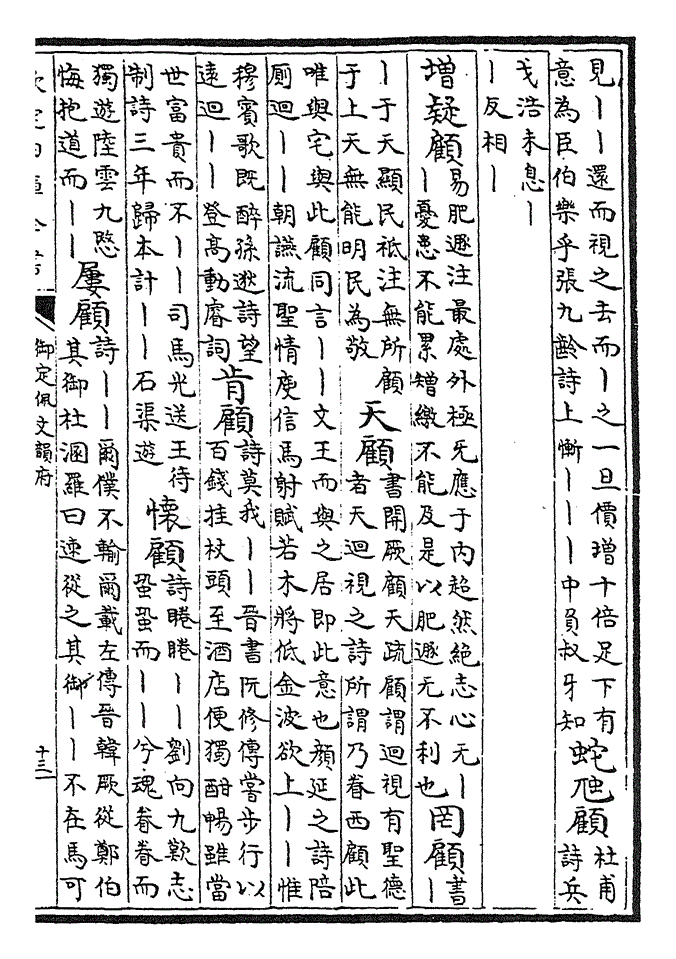 見｜｜還而視之去而｜之一旦價璔十倍足下有
意為臣伯樂乎張九齡詩上慚｜｜｜｜中員叔牙知
蛇虺顧
杜甫
詩兵
戈浩未息｜
｜反相｜
增疑顧
易肥遯注最處外極无應于内超然絶志心无｜
｜憂患不能累矰繳不能及是以肥遯无不利也
罔顧
書
｜
｜于天顯民祗注無所顧
于上天無能明民為敬
天顧
書開厥顧天疏顧謂迴視有聖德
者天迴視之詩所謂乃眷西顧此
唯與宅與此顧同言｜｜文王而與之居即此意也顔延之詩陪
厠迴｜｜朝讌流聖情庾信馬射賦若木將低金波欲上｜｜惟
穆賓歌既醉孫逖詩望
遠迴｜｜登高動睿詞
肯顧
詩莫我｜｜晉書阮修傳嘗步行以
百錢挂杖頭至酒店便獨酣暢雖當
世富貴而不｜｜司馬光送王待
制詩三年歸本計｜｜石渠遊
懷顧
詩睠睠｜｜劉向九歎志
蛩蛩而｜｜兮魂眷眷而
獨遊陸雲九愍
悔抱道而｜｜
屢顧
詩｜｜爾僕不輸爾載左傳晉韓厥從鄭伯
其御杜溷羅曰速從之其御｜｜不在馬可
御定佩文韻府
十三